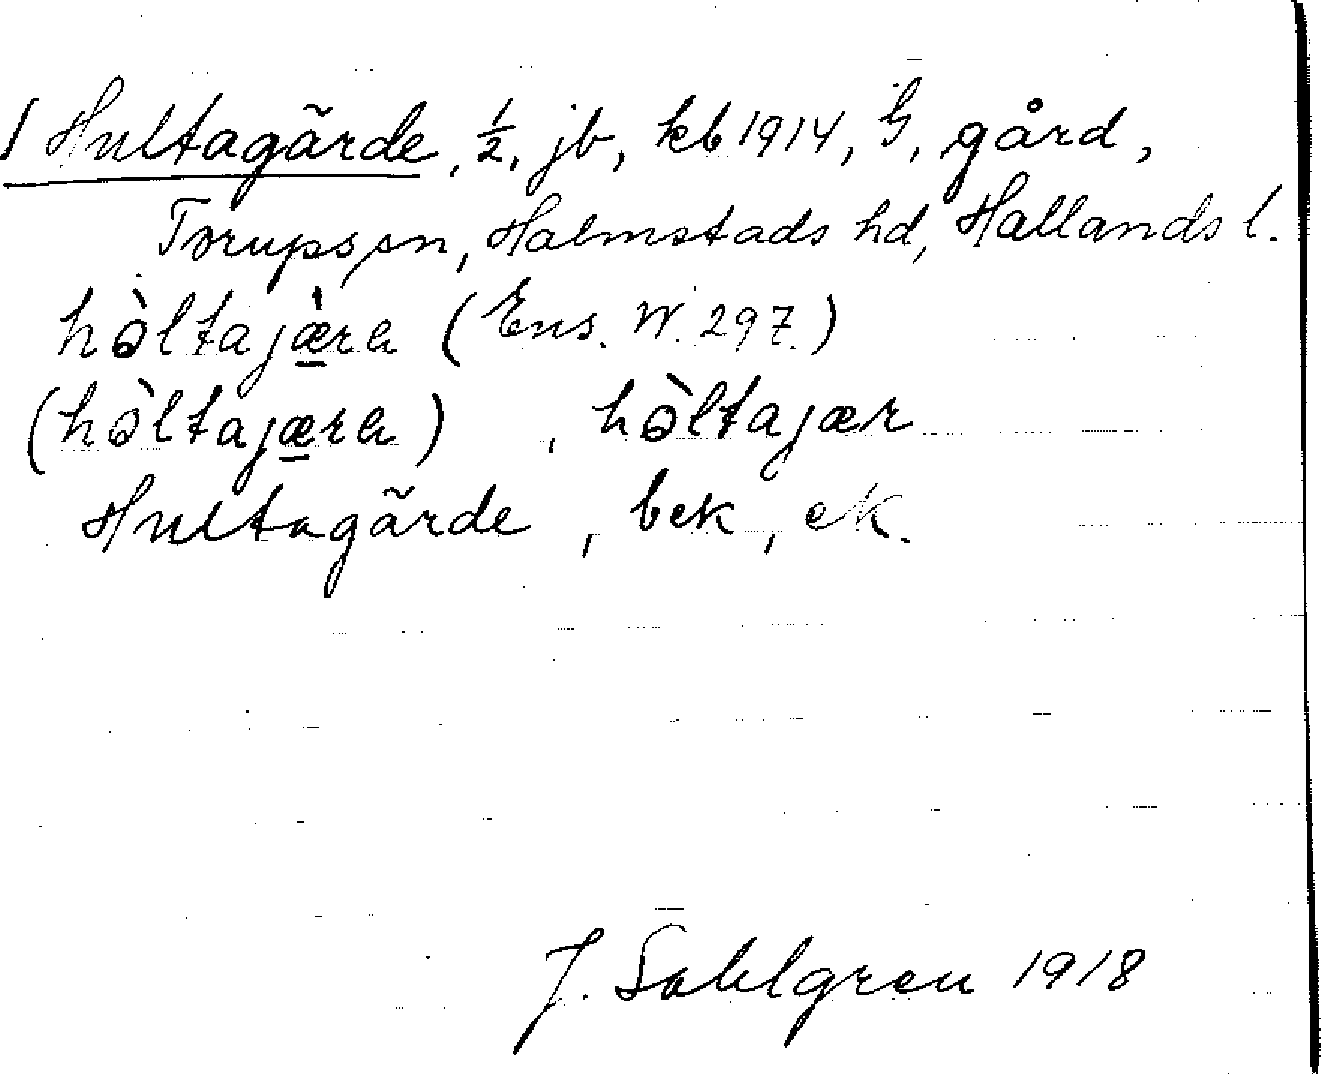 1 Hultagärde, ½, jb, kb 1914, G, gård,
Torups sn, Halmstads hd, Hallands l.
hòltajæ̀ra (Ens. W. 297.)
(hòltajæra), hòltajær
Hultagärde, bek, ek.
J. Sahlgren 1918